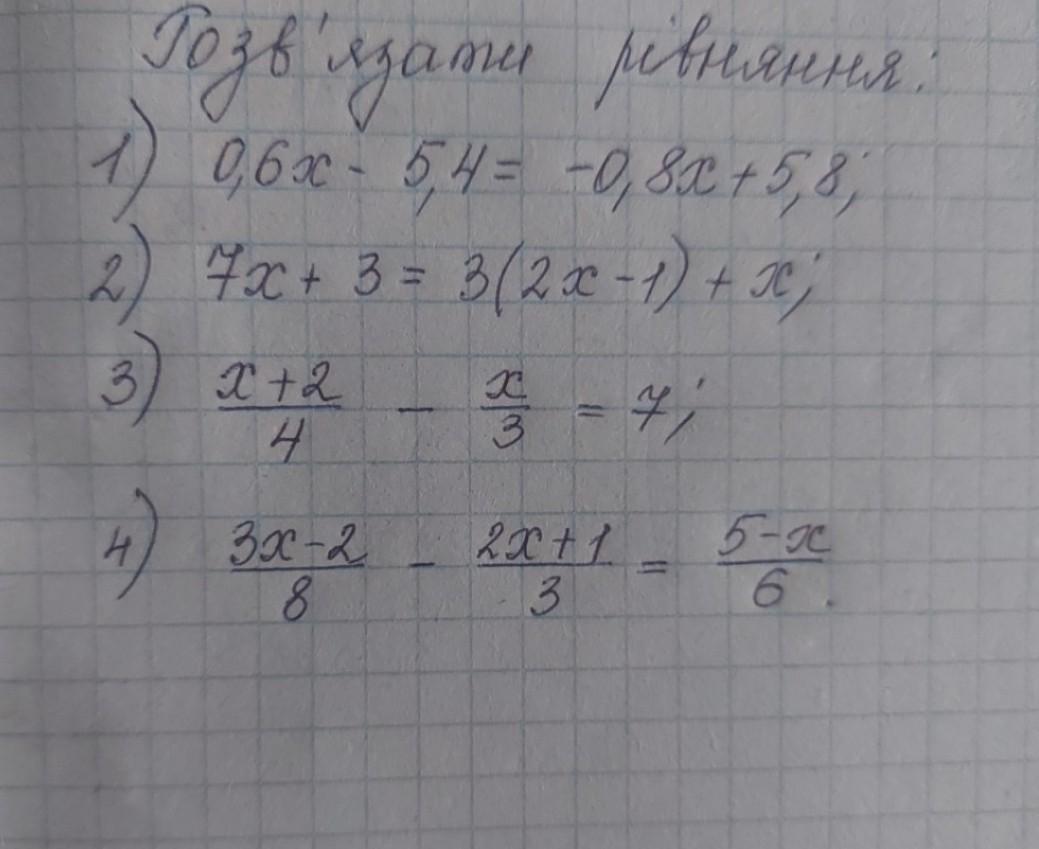 Розв'язати рівняння:
1) 0,6x - 5,4 = -0,8x + 5,8;
2) 7x + 3 = 3(2x - 1) + x;
3) (x + 2)/4 - x/3 = 7;
4) (3x - 2)/8 - (2x + 1)/3 = (5 - x)/6.